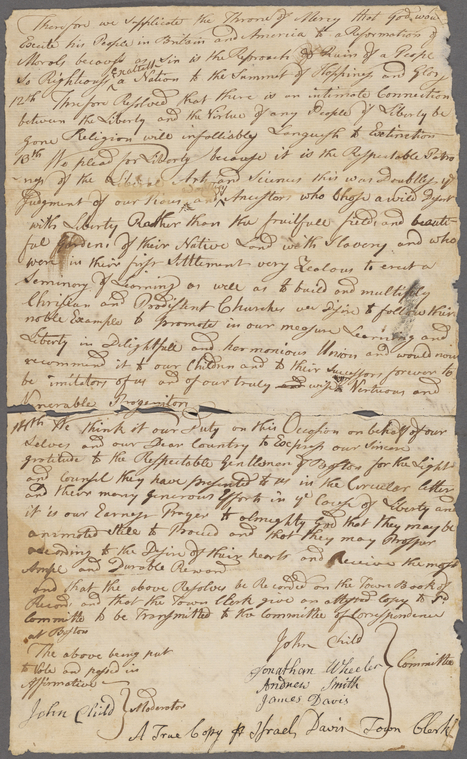 Therefore we supplicate the Throne of Mercy that God would
Excite his People in Britain and America to a Reformation of
Morals because as Sin is the Reproach & Ruin of a People
So Righteous exalteth a Nation to the Summit of Happiness and Glory
12th Therefore Resolved that there is an intimate Connection
between the Liberty and the Virtue of any People if Liberty be
gone Religion will infallibly Languish to Extinction
13th We plead for Liberty because it is the Respectable Patro
ness of the Liberal Arts and Sciences this was Doubtless ye
Judgment of our Pious Ancestors who Chose a wild Desert
with Liberty Rather than the fruitfull fields and beauti
full Gardens of their Native Land with Slavery and who
were in their first Settlement very Zealous to erect a
Seminary of Learning as well as to build and multiply
Christian and Prodistent Churches we desire to follow their
noble Example to promote in our measure Learning and
Liberty in Delightfull and harmonious Union and would now
recommend it to our Children and to their Successors forever to
be imitators of us and of our truly wise Vertuous and
Venerable Progenitors
14th We think it our Duty on this Occasion on behalf of our
Selves and our Dear Country to Express our Sincere
gratitude to the Respectable Gentlemen of Boston for the Light
and Councel they have presented to us in the Circular Letter
and their many generous Efforts in ye Cause of Liberty and
it is our Earnest Prayer to almighty God that they may be
animated still to Proceed and that they may Prosper
according to the Desire of their hearts and Receive the most
Ample and Durable Reward
and that the above Resolves be Recorded on the Town Book of
Record and that the Town Clerk give an attested Copy to
Committe to be Transmitted to the Committe of Correspondence
at Boston
The above being put
to Vote and passed in
Affirmative
John Child Moderator
John Child
Jonathan Wheeler
Andrew Smith
James Davis
Committee
A True Copy Pr Israel Davis Town Clerk